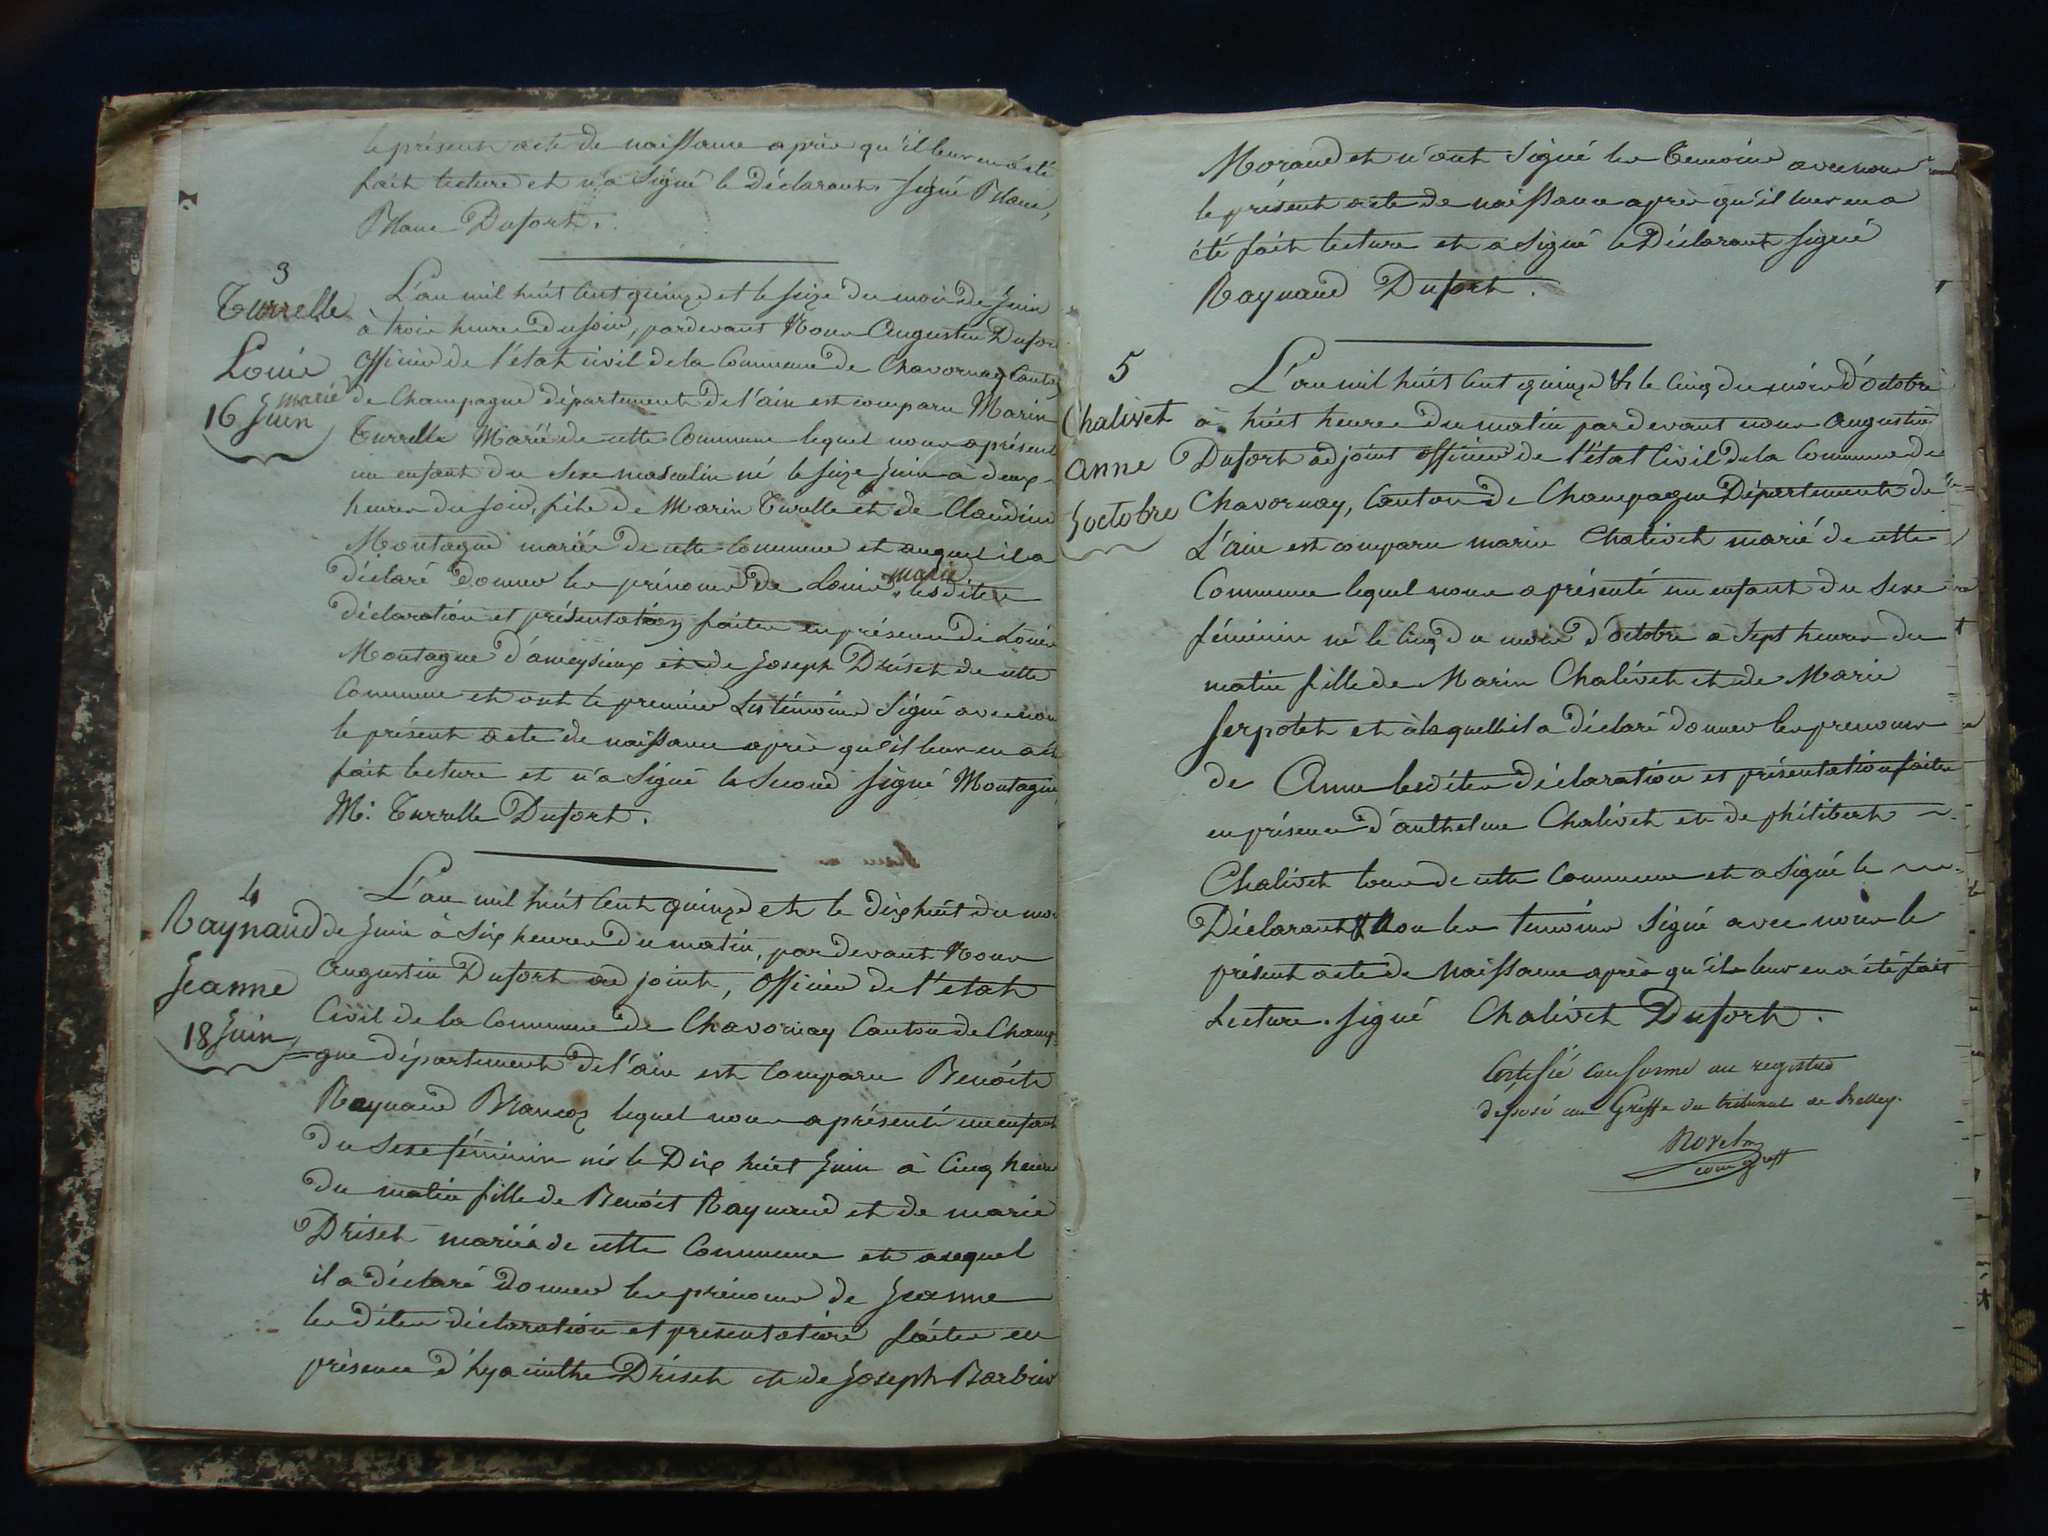 le présent acte de naissance après qu'il leur en a été
fait lecture et n'a signé le Déclarant. signé Blanc,
Blanc Dufort.
3
Turrelle
Louis
marie
16 Juin
L'an mil huit cent quinze et le seize du mois de Juin
à trois heures du soir, pardevant Nous Augustin Dufort
officier de l'état civil de la Commune de Chavornay Canton
de Champagne département de l'ain est comparu Marin
Turrelle Marié de cette Commune lequel nous a présenté
un enfant du sexe masculin né le seize Juin à deux
heures du soir, fils de Marin Turelle et de Claudine
Montagne mariée de cette Commune et auquel il a
déclaré donner les prénoms de Louis marie lesdites
déclaration et présentation faites en présence de Louis
Montagne d'ameysieux et de Joseph Driset de cette
Commune et ont le premier des témoins signé avec nous
le présent acte de naissance après qu'il leur en a été
fait lecture et n'a signé le second signé Montagne,
M. Turrelle Dufort.
4
Raynaud
Jeanne
18 Juin
L'an mil huit cent quinze et le dix huit du mois
de Juin à six heures du matin, pardevant Nous
Augustin Dufort adjoint, officier de l'état
Civil de la Commune de Chavornay Canton de Champa-
gne département de l'ain est comparu Benoît
Raynaud Brancoz lequel nous a présenté un enfant
du sexe féminin née le Dix huit Juin à cinq heures
du matin fille de Benoît Raynaud et de marie
Driset mariés de cette Commune et auquel
il a déclaré donner les prénoms de Jeanne
les dites déclaration et présentation faites en
présence d'hyacinthe Driset et de Joseph Barbier
Morand et n'ont signé les temoins avec nous
le présent acte de naissance après qu'il leur en a
été fait lecture et a signé le Déclarant signé
Raynaud Dufort.
5
Chalivet
anne
5 octobre
L'an mil huit cent quinze & le cinq du mois d'octobre
à huit heures du matin pardevant nous augustin
Dufort adjoint officier de l'état Civil de la Commune de
Chavornay, Canton de Champagne Département de
L'ain est comparu marin Chalivet marié de cette
Commune lequel nous a présenté un enfant du sexe
féminin né le cinq du mois d'octobre à sept heures du
matin fille de Marin Chalivet et de Marie
Serpolet et à laquelle il a déclaré donner les prenoms
de Anne lesdites déclaration et présentation faites
en présence d'anthelme Chalivet et de philibert
Chalivet tous de cette Commune et a signé le
Déclarant & non les temoins signé avec nous le
présent acte de Naissance après qu'il leur en a été fait
Lecture. signé Chalivet Dufort.
Certifié conforme au registre
déposé au Greffe du tribunal de Belley.